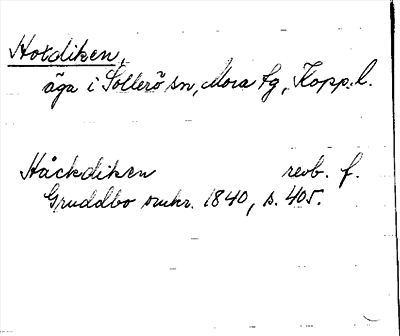 Hotdiken,
äga i Sollerö sn, Mora tg, Kopp. l.
Håckdiken revb. f.
Gruddbo smkr. 1840, s. 405.